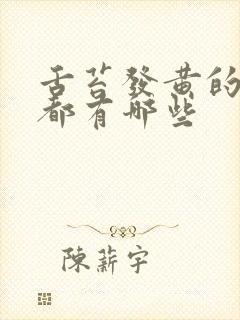 舌苔發黄的
都有哪些
陳薪宇